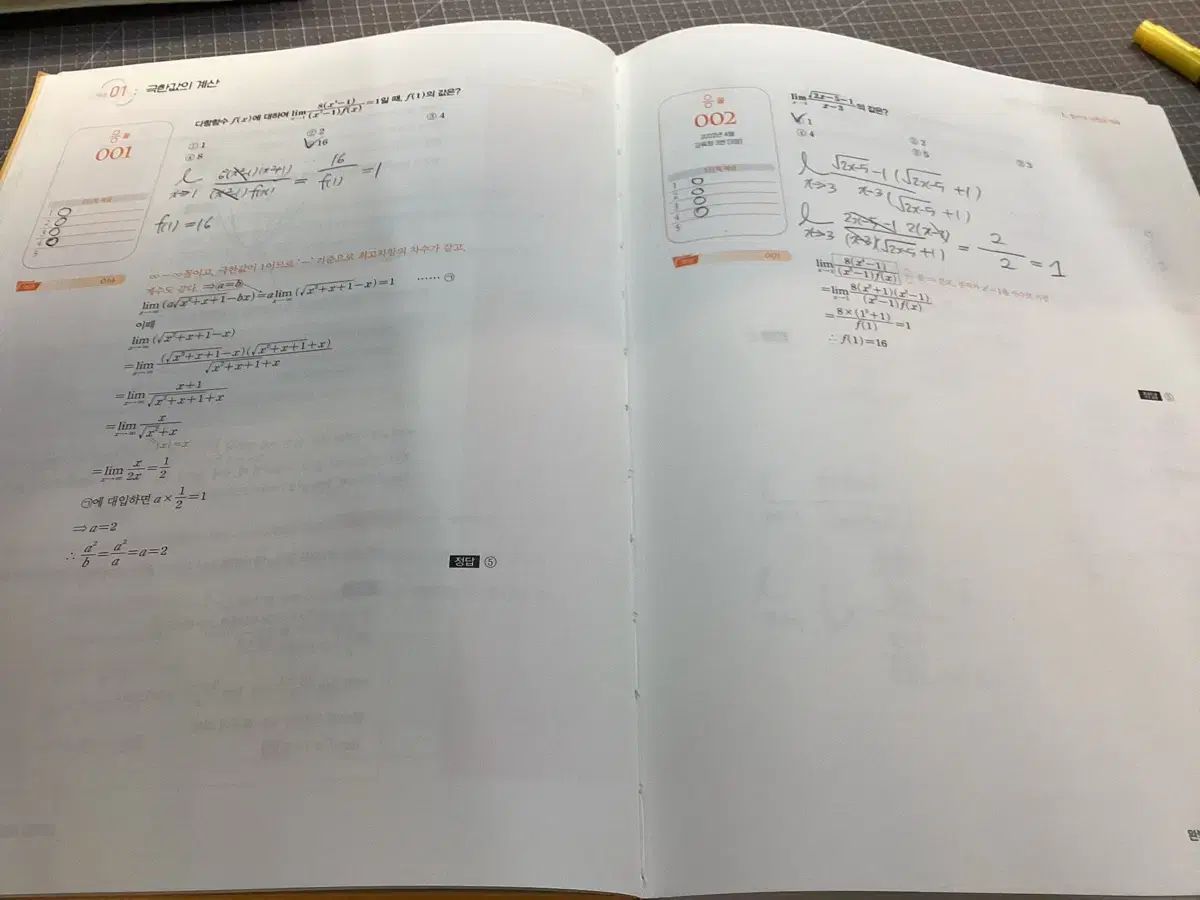 01 극한값의 계산
응
001
다항함수 f(x)에 대하여 lim 8(x⁴-1)/(x²-1)f(x)=1일 때, f(1)의 값은?
① 1 ② 2 ③ 4
④ 8 ⑤ 16
x→1 (x²-1)(x²+1)/(x²-1)f(x) = 16/f(1) = 1
f(1)=16
1
2
3
4
5
014
∞-∞꼴이고, 극한값이 1이므로 '-' 기준으로 최고차항의 차수가 같고,
계수도 같다. ⇒ a=b
lim (a√x²+x+1-bx)=a lim (√x²+x+1-x)=1 …… ㉠
이때
lim (√x²+x+1-x)
=lim (√x²+x+1-x)(√x²+x+1+x)/√x²+x+1+x
=lim x+1/√x²+x+1+x
=lim x/√x²+x
|x|=x
=lim x/2x=1/2
㉠에 대입하면 a×1/2=1
⇒ a=2
∴ a²/b=a²/a=a=2
정답 ⑤
응
002
lim √2x-5-1/x-3의 값은?
① 1 ② 2 ③ 3
④ 4 ⑤ 5
1
2
3
4
5
x→3 √2x-5-1(√2x-5+1)/x-3(√2x-5+1)
x→3 2x-5-1 2(x-3)/(x-3)(√2x-5+1) = 2/2 = 1
001
lim 8(x⁴-1)/(x²-1)f(x)
=lim 8(x²+1)(x²-1)/(x²-1)f(x)
=8×(1²+1)/f(1)=1
∴ f(1)=16
정답 ⑤